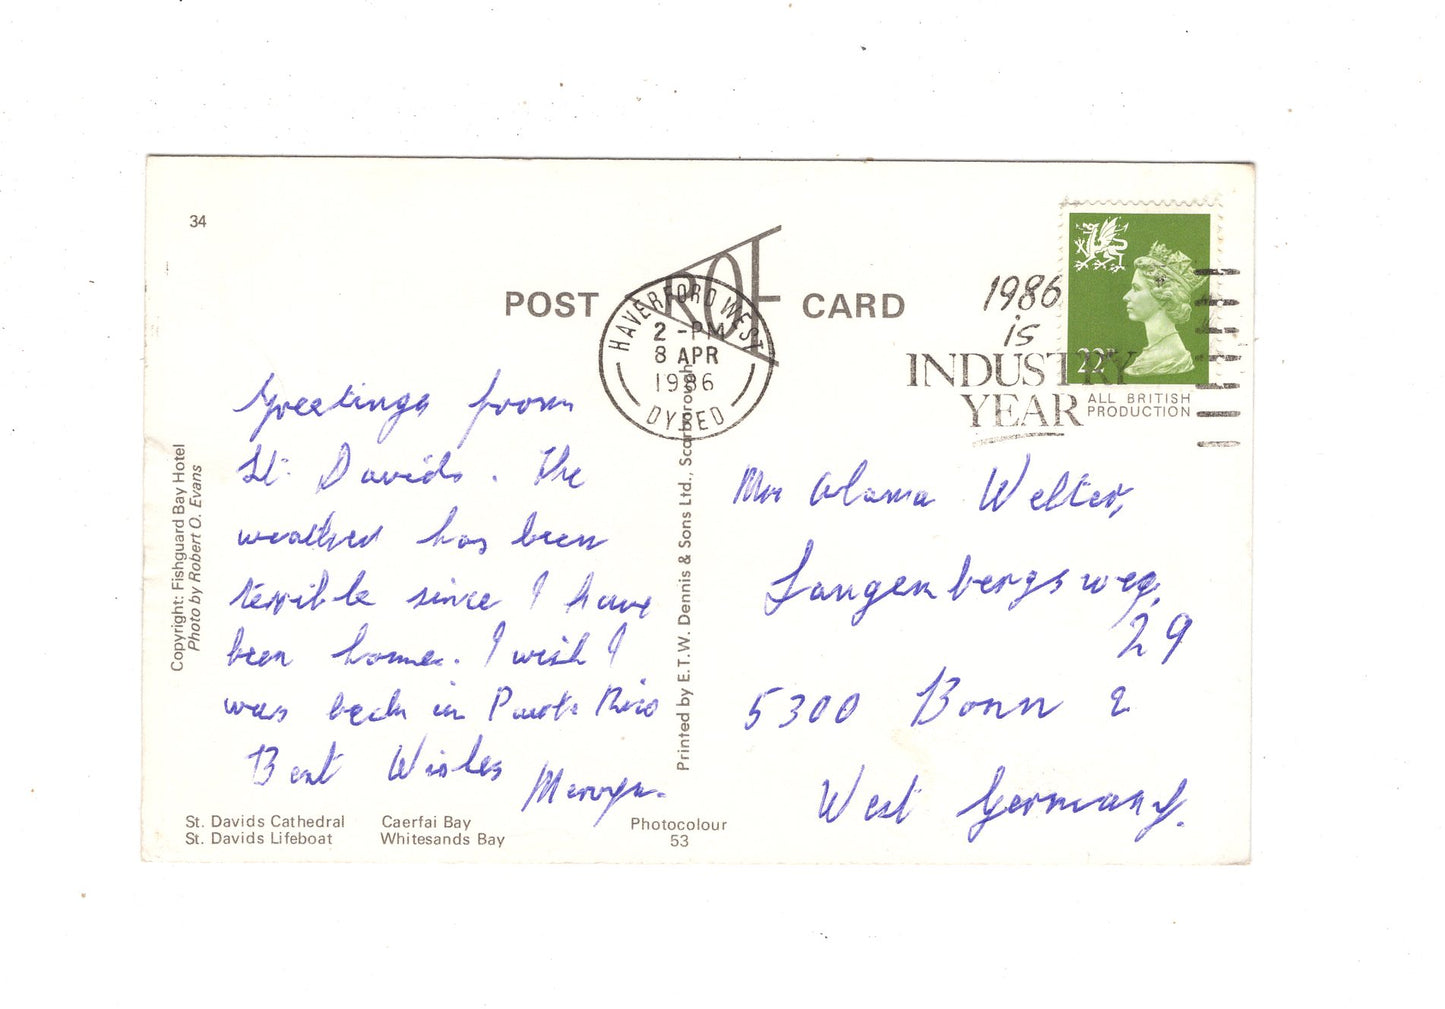 34
POST CARD
ROF
HAVERFORD WEST
2 -PM
8 APR
1986
DYFED
1986
is
INDUSTRY
YEAR
22P
ALL BRITISH
PRODUCTION
Greetings from
St. Davids. The
weather has been
terrible since I have
been home. I wish I
was back in Puerto Rico
Best Wishes
Mervyn.
Copyright: Fishguard Bay Hotel
Photo by Robert O. Evans
Printed by E.T.W. Dennis & Sons Ltd., Scarborough
Welter,
Langenbergsweg,
29
5300 Bonn 2
West Germany.
St. Davids Cathedral Caerfai Bay
St. Davids Lifeboat Whitesands Bay
Photocolour
53